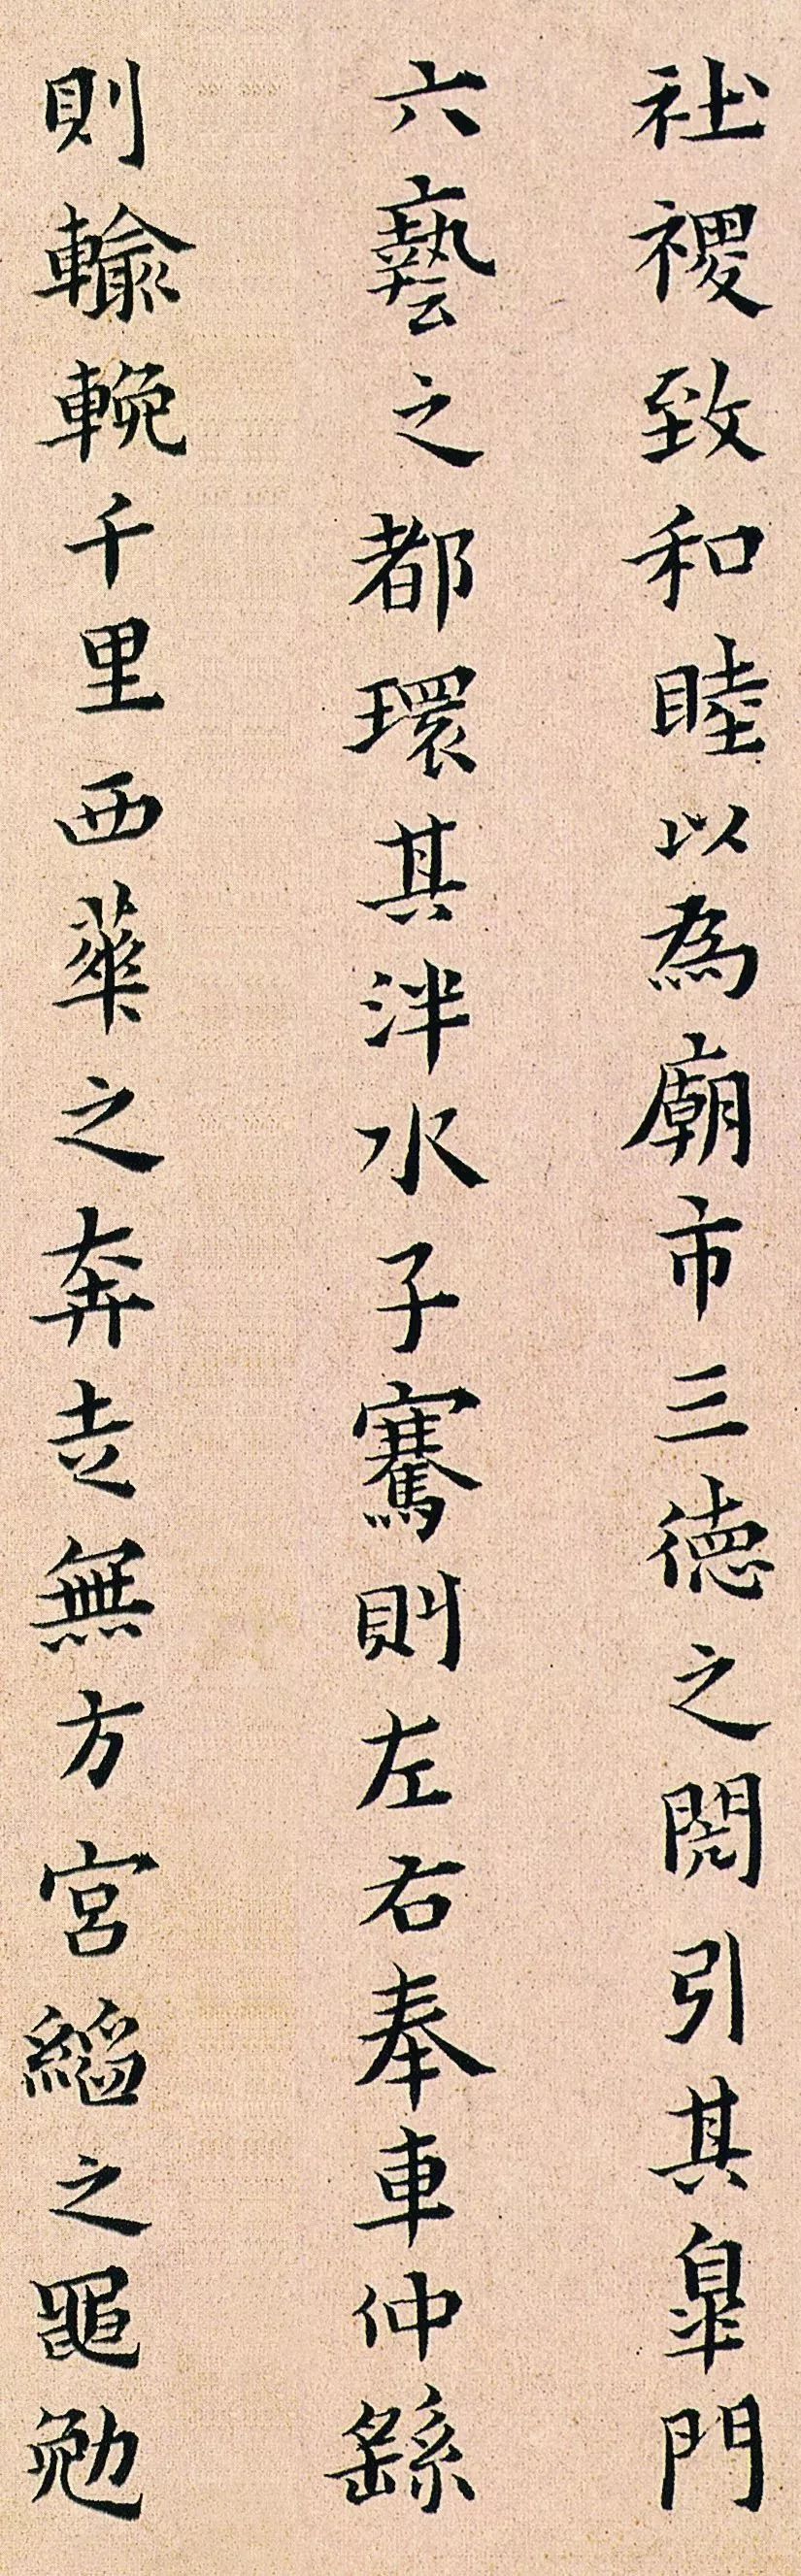 社禝致和睦以為廟市三徳之閌引其皐門
六藝之都環其泮水子騫則左右奉車仲繇
則輸輓千里西華之奔走無方宮縚之黽勉